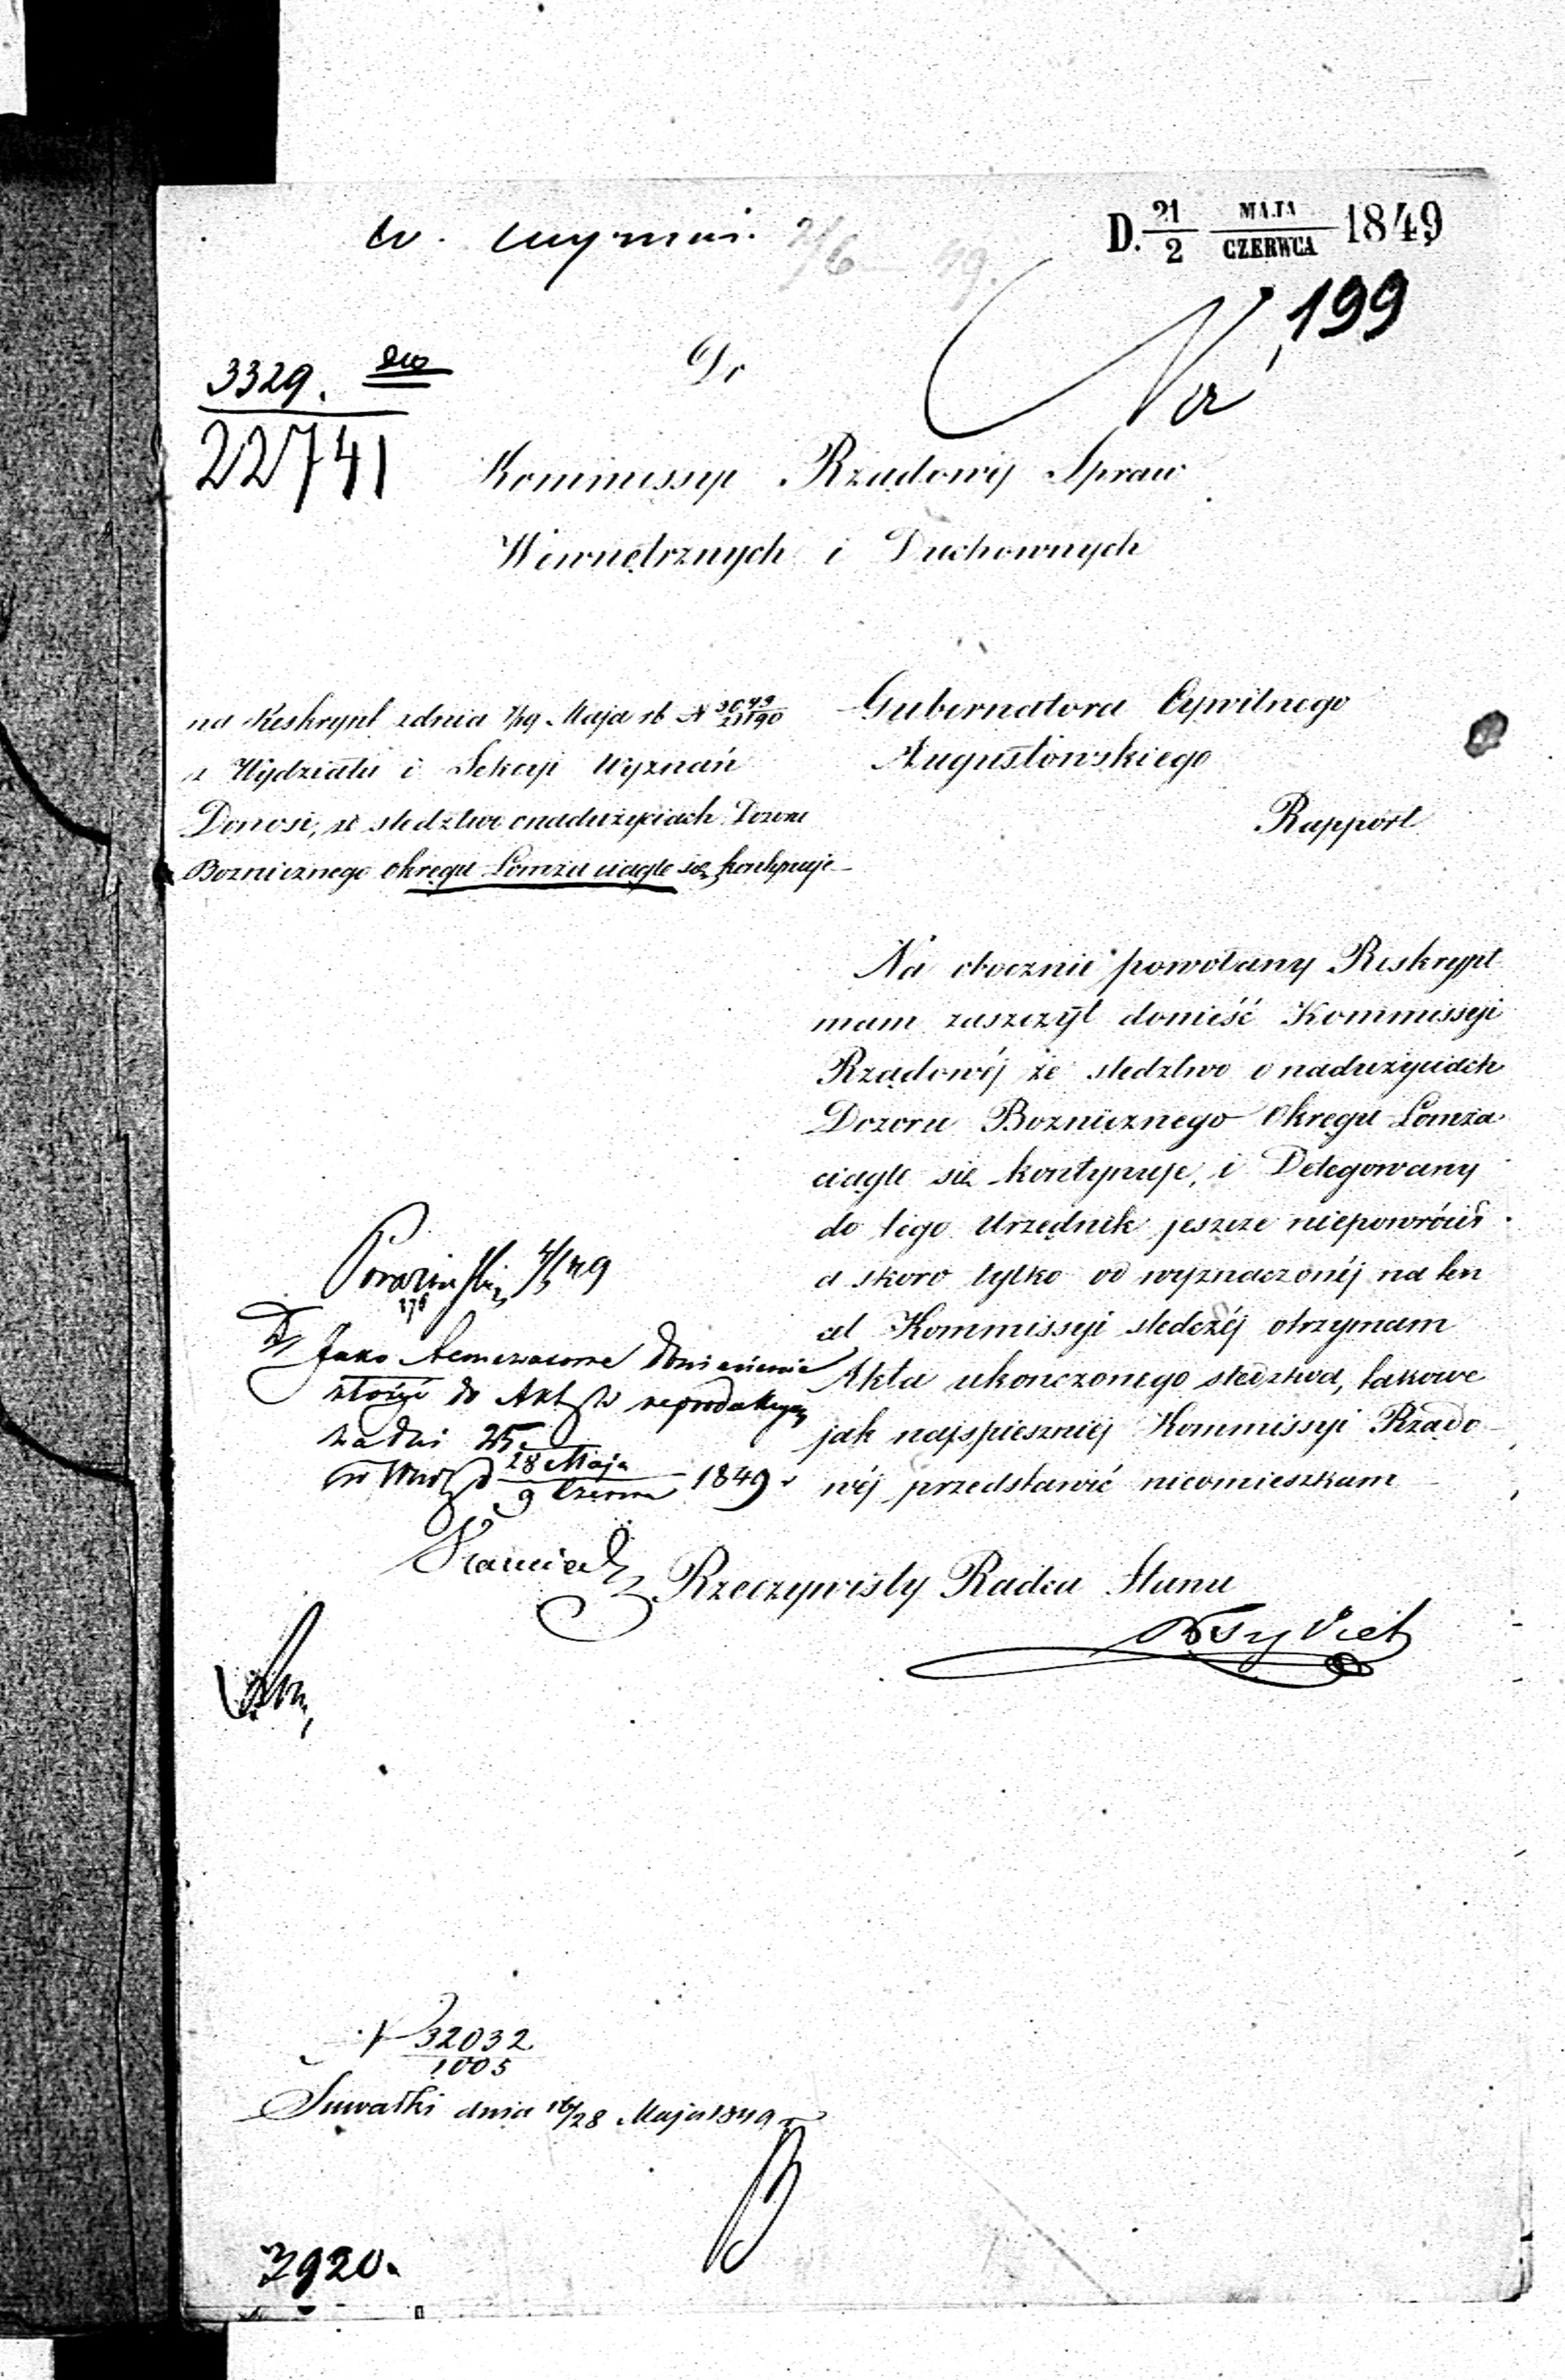 D. 21/2 MAJA/CZERWCA 1849
199
Do
3329.
22741
Kommissyi Rządowéj Spraw
Wewnętrznych i Duchownych
na Reskrypt z dnia 7/19 Maja rb N
z Wydziału i Sekcyi Wyznań
Donosi, że śledztwo o nadużyciach Dozoru
Boznicznego Okręgu Łomża ciągle się kontynuje
Gubernatora Cywilnego
Augustowskiego
Rapport
Na obocznie powołany Reskrypt
mam zaszczyt donieść Kommissyi
Rządowéj że śledztwo o nadużyciach
Dozoru Boznicznego Okręgu Łomża
ciągle się kontynuje, i Delegowany
do tego Urzędnik jeszcze niepowrócił
a skoro tylko od wyznaczonéj na ten
cel Kommissyi śledczéj otrzymam
Akta ukończonego śledztwa, takowe
jak najspieszniéj Kommissyi Rządo
wéj przedstawić nieomieszkam
Jako doniesienie
złożyć do Akt
za dni 25.
28 Maja/9 Czerwca 1849 r
Rzeczywisty Radca Stanu
N 32032/1005
Suwałki dnia 16/28 Maja 1849 r
7920.